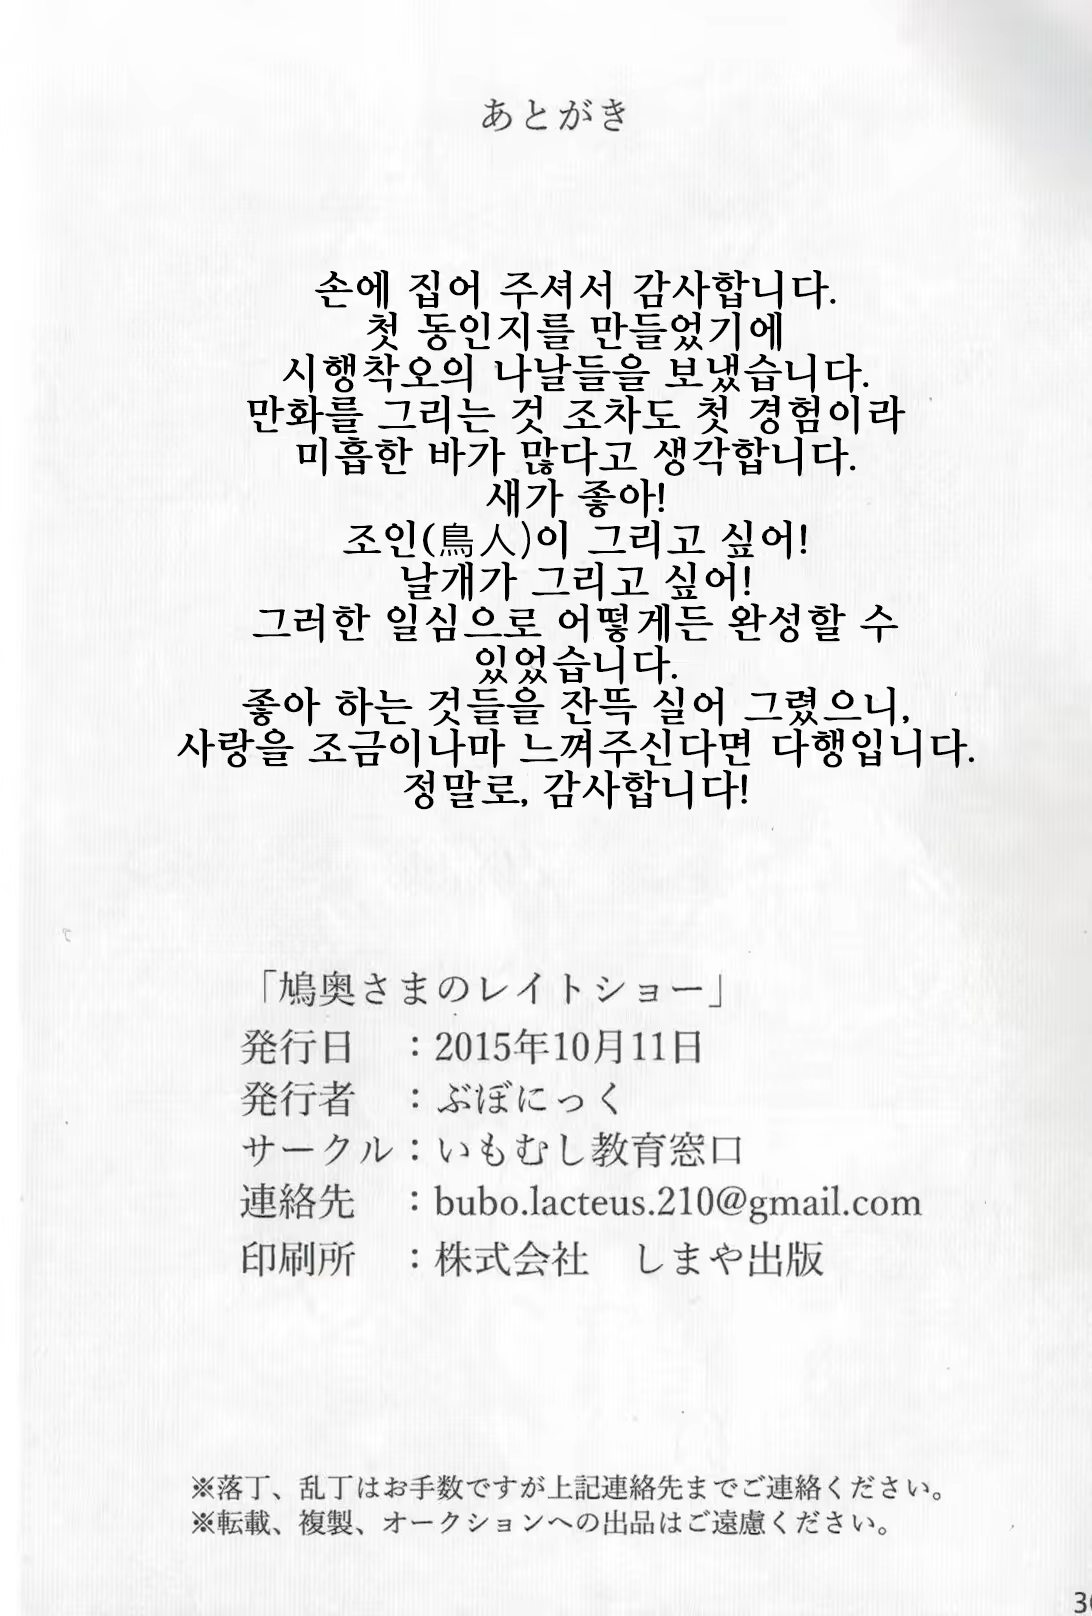 あとがき
손에 집어 주셔서 감사합니다.
첫 동인지를 만들었기에
시행착오의 나날들을 보냈습니다.
만화를 그리는 것 조차도 첫 경험이라
미흡한 바가 많다고 생각합니다.
새가 좋아!
조인(鳥人)이 그리고 싶어!
날개가 그리고 싶어!
그러한 일심으로 어떻게든 완성할 수
있었습니다.
좋아 하는 것들을 잔뜩 실어 그렸으니,
사랑을 조금이나마 느껴주신다면 다행입니다.
정말로, 감사합니다!
「鳩奥さまのレイトショー」
発行日　：2015年10月11日
発行者　：ぶぼにっく
サークル：いもむし教育窓口
連絡先　：bubo.lacteus.210@gmail.com
印刷所　：株式会社　しまや出版
※落丁、乱丁はお手数ですが上記連絡先までご連絡ください。
※転載、複製、オークションへの出品はご遠慮ください。